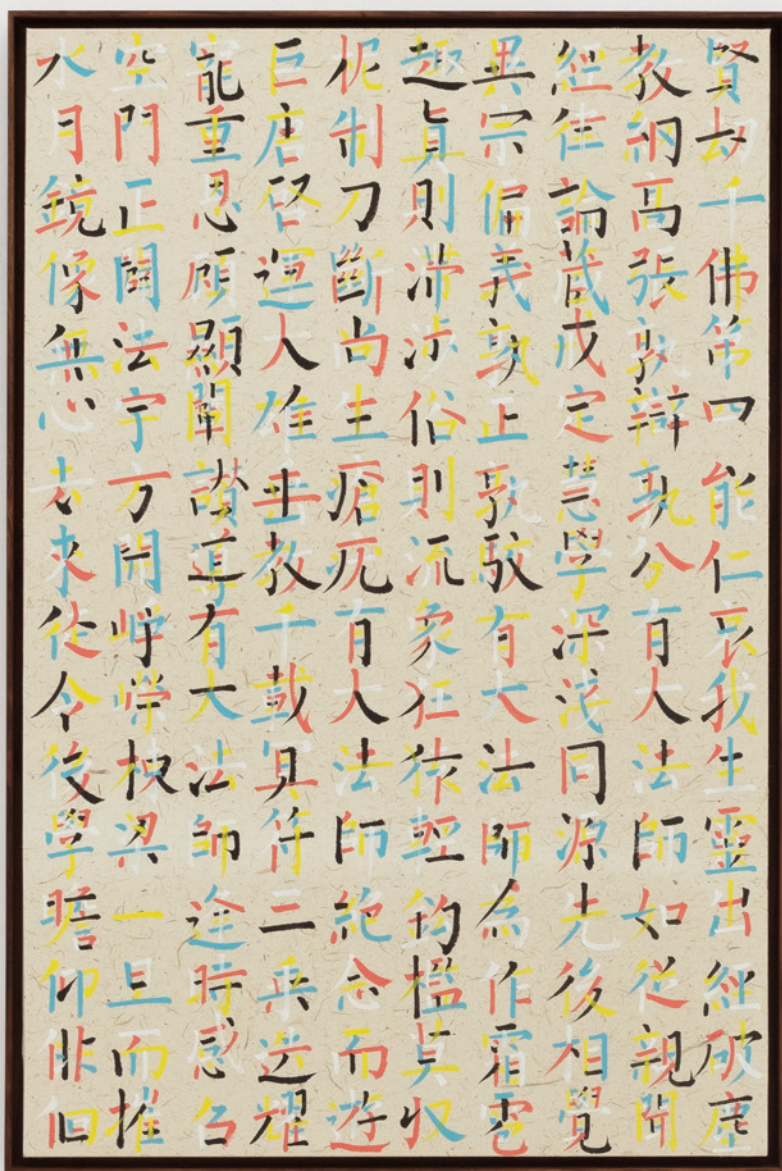 賢劫千佛第四能仁哀我生靈出經破塵
教網高張孰辯孰分有大法師如從親聞
經律論藏戒定慧學深淺同源先後相覺
異宗偏義孰正孰駮有大法師為作霜雹
趣真則滯涉俗則流象狂猿輕鉤檻莫収
柅制刀斷尚生瘡疣有大法師絕念而遊
巨唐啓運大雄垂教千載冥符三乘迭耀
寵重恩顧顯闡讚導有大法師逢時感召
空門正闢法宇方開崢嶸棟梁一旦而摧
水月鏡像無心去來徒令後學瞻仰俳佪